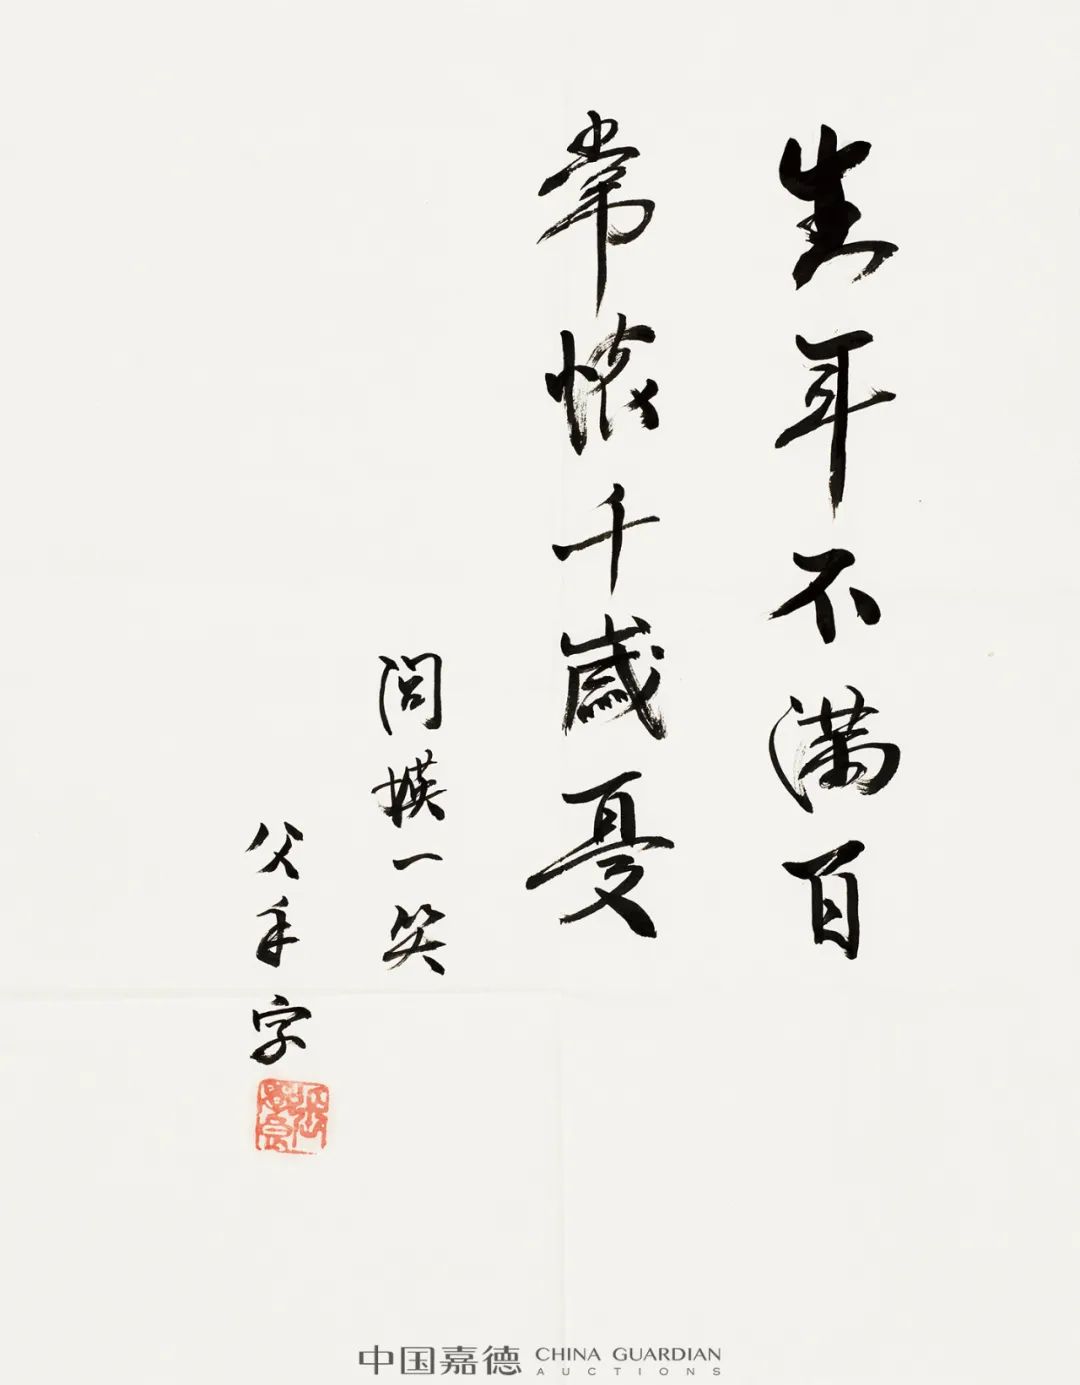 生年不滿百
常懷千歲憂
閭媖一笑
父手字
張學良
中国嘉德 CHINA GUARDIAN
AUCTIONS